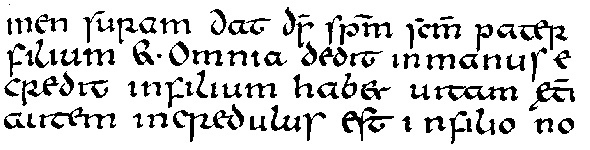 men suram dat d̄s sp̄m sc̄m pater
filium &. Omnia dedit inmanus e
credit infilium hab& uitam &̄
autem incredulus est infilio no